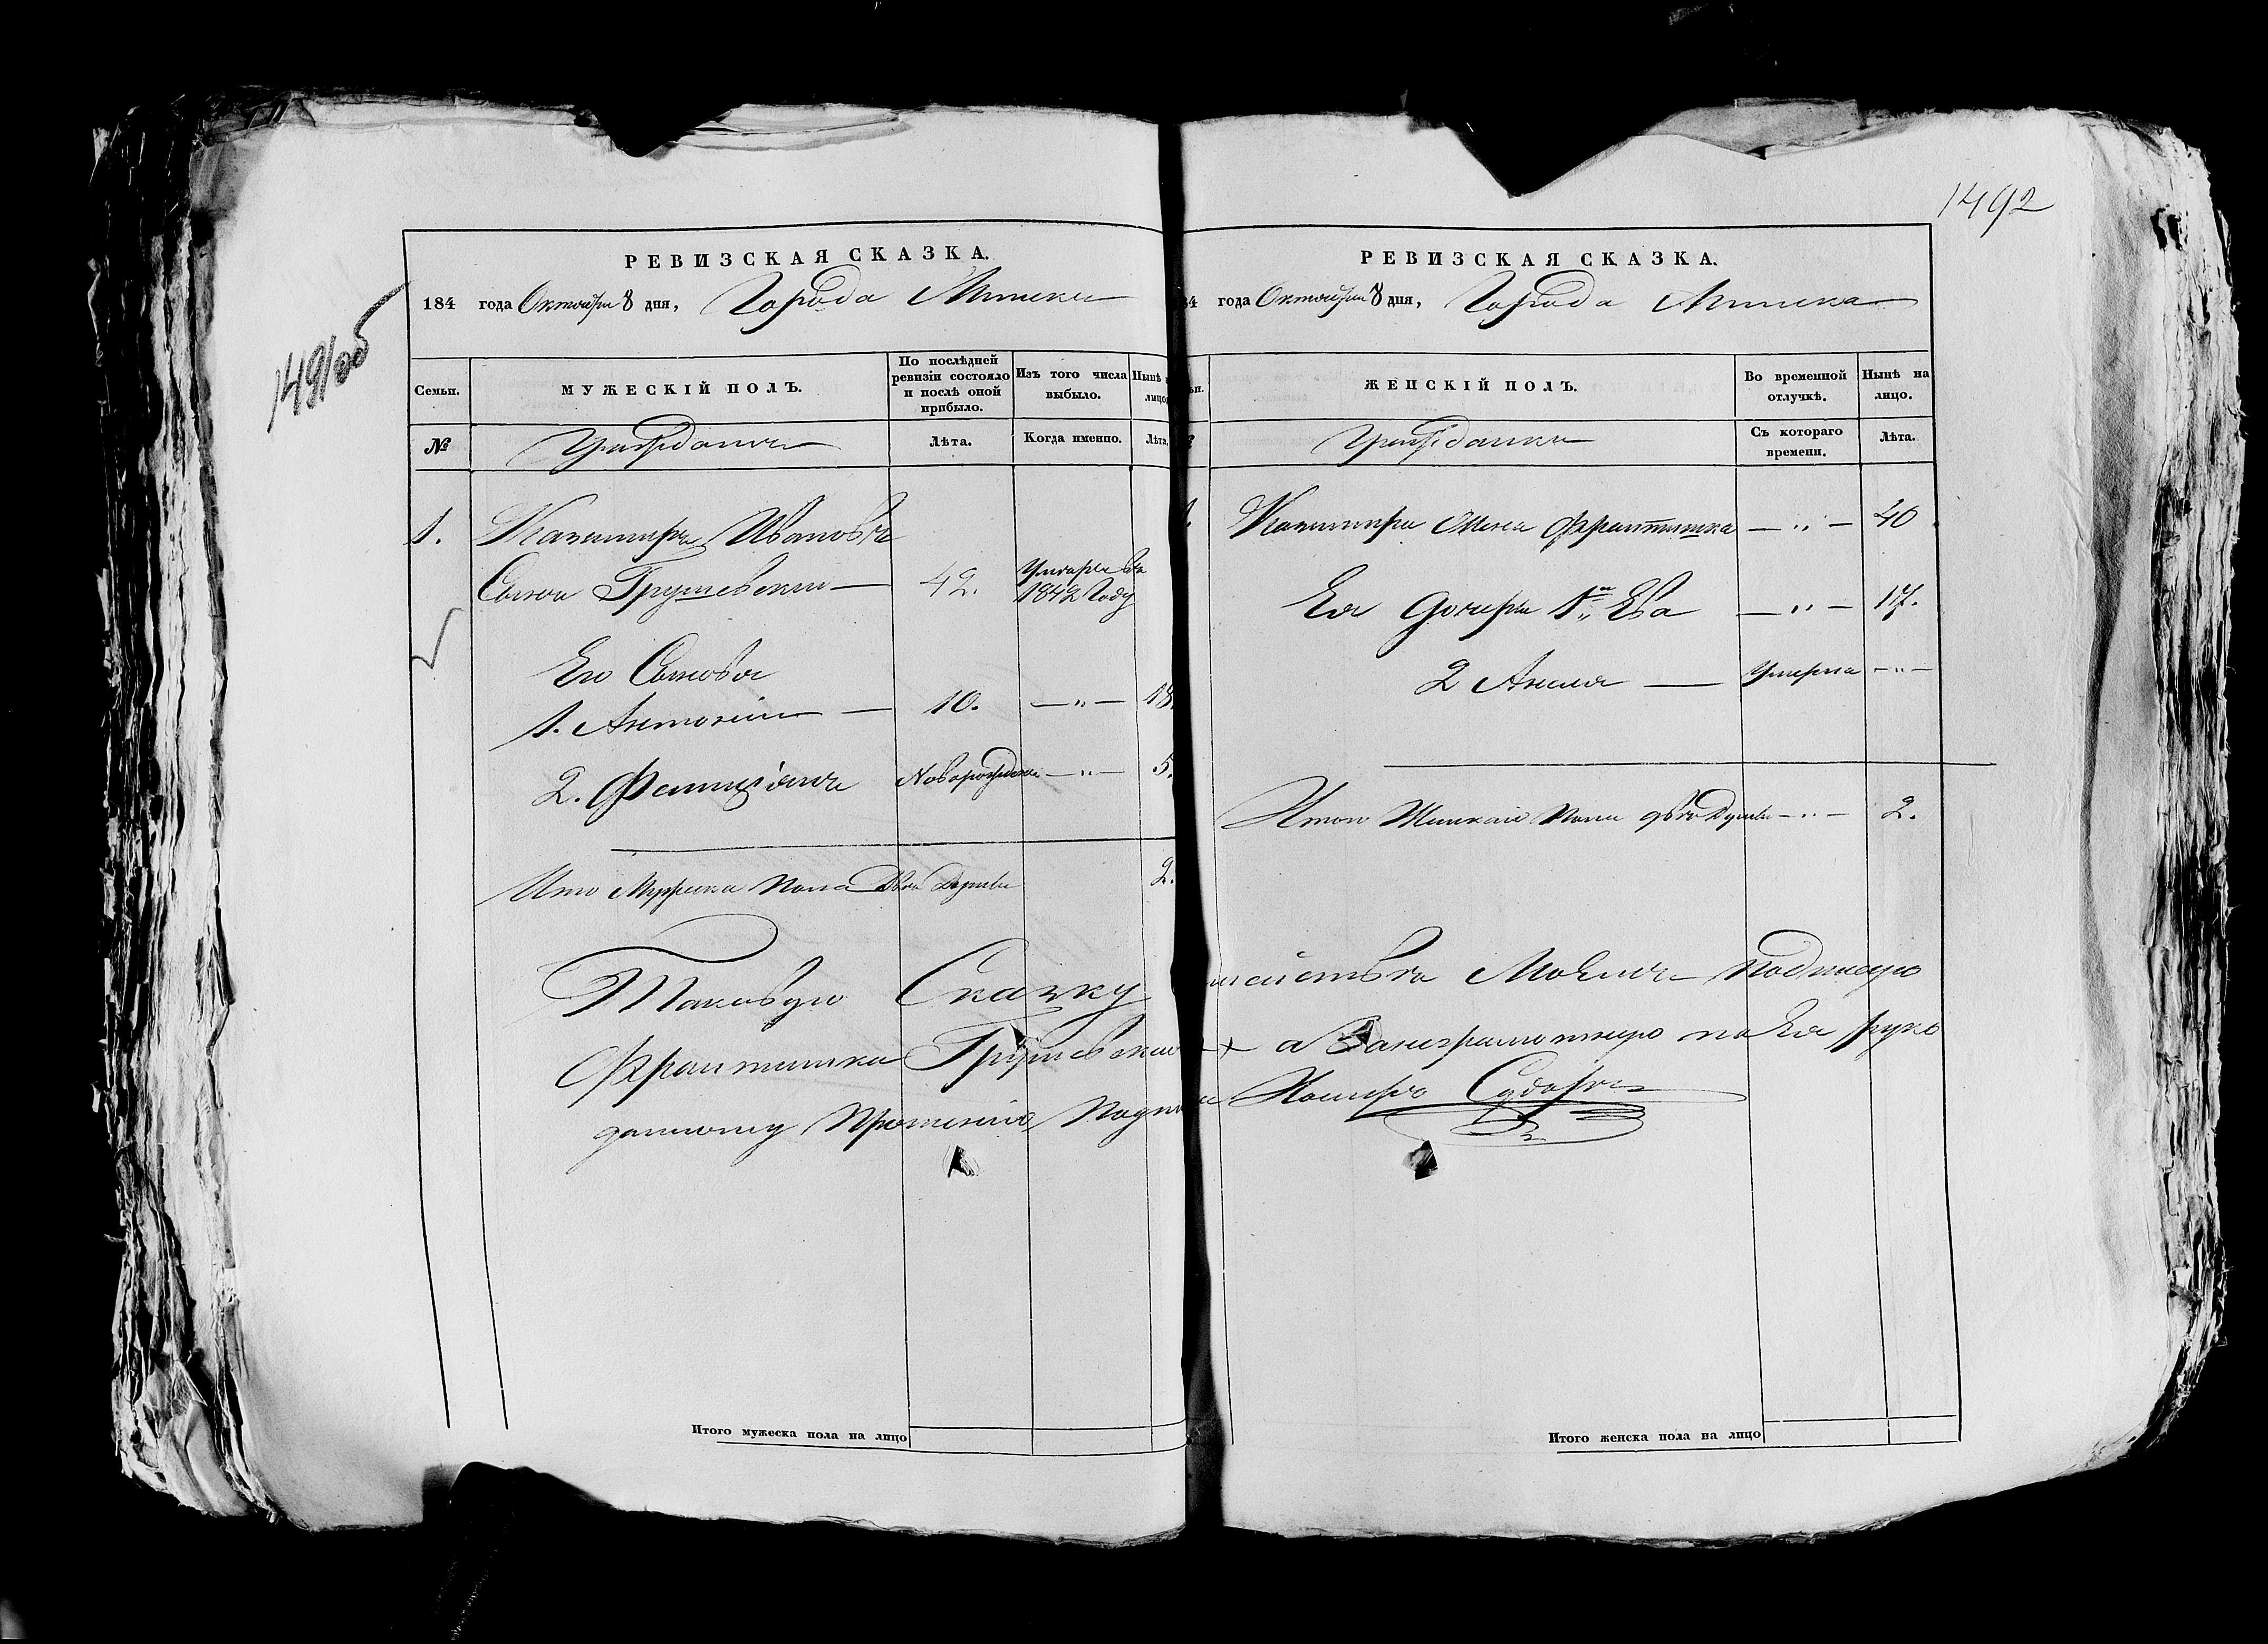 1491об
РЕВИЗСКАЯ СКАЗКА.
184 года Октября 8 дня, Города Минска
Семьи.
МУЖЕСКІЙ ПОЛЪ.
По послѣдней ревизіи состояло и послѣ оной прибыло.
Изъ того числа выбыло.
Нынѣ лицо
№
Гражданъ
Лѣта.
Когда именно.
Лѣта.
1. Казимиръ Ивановъ
Сынъ Грушевскій — 42. Умеръ въ 1842 Году
Его Сыновья
1. Антоній — 10. — " — 18.
2. Фелиціянъ Новорожден — " — 5.
Итого Мужеска Пола Двѣ Души 2.
Таковую Сказку
Францишка Грушевская
данному Прошенію
Итого мужеска пола на лицо
1492
РЕВИЗСКАЯ СКАЗКА.
84 года Октября 8 дня, Города Минска
ЖЕНСКІЙ ПОЛЪ.
Во временной отлучкѣ.
Нынѣ на лицо.
Гражданка
Съ котораго времени.
Лѣта.
1. Казимира Жена Францишка — " — 40.
Ея Дочери 1я Ева — " — 17.
2 Анеля — Умерла — " —
Итого Женскаго Пола двѣ Души — " — 2.
Подписую
+ а за неграмотную по Ея руко
Итого женска пола на лицо